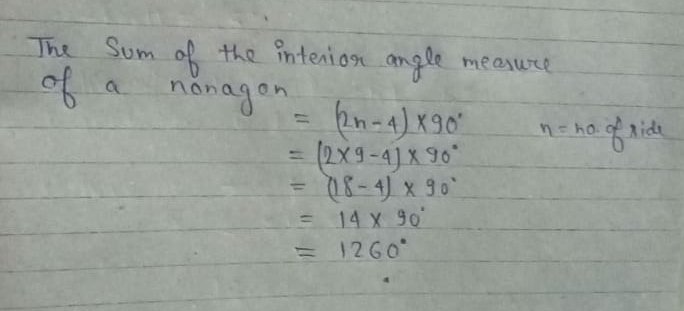 The Sum of the interior angle measure
of a nonagon
= (2n-4) × 90° n = no. of side
= (2×9-4) × 90°
= (18-4) × 90°
= 14 × 90°
= 1260°